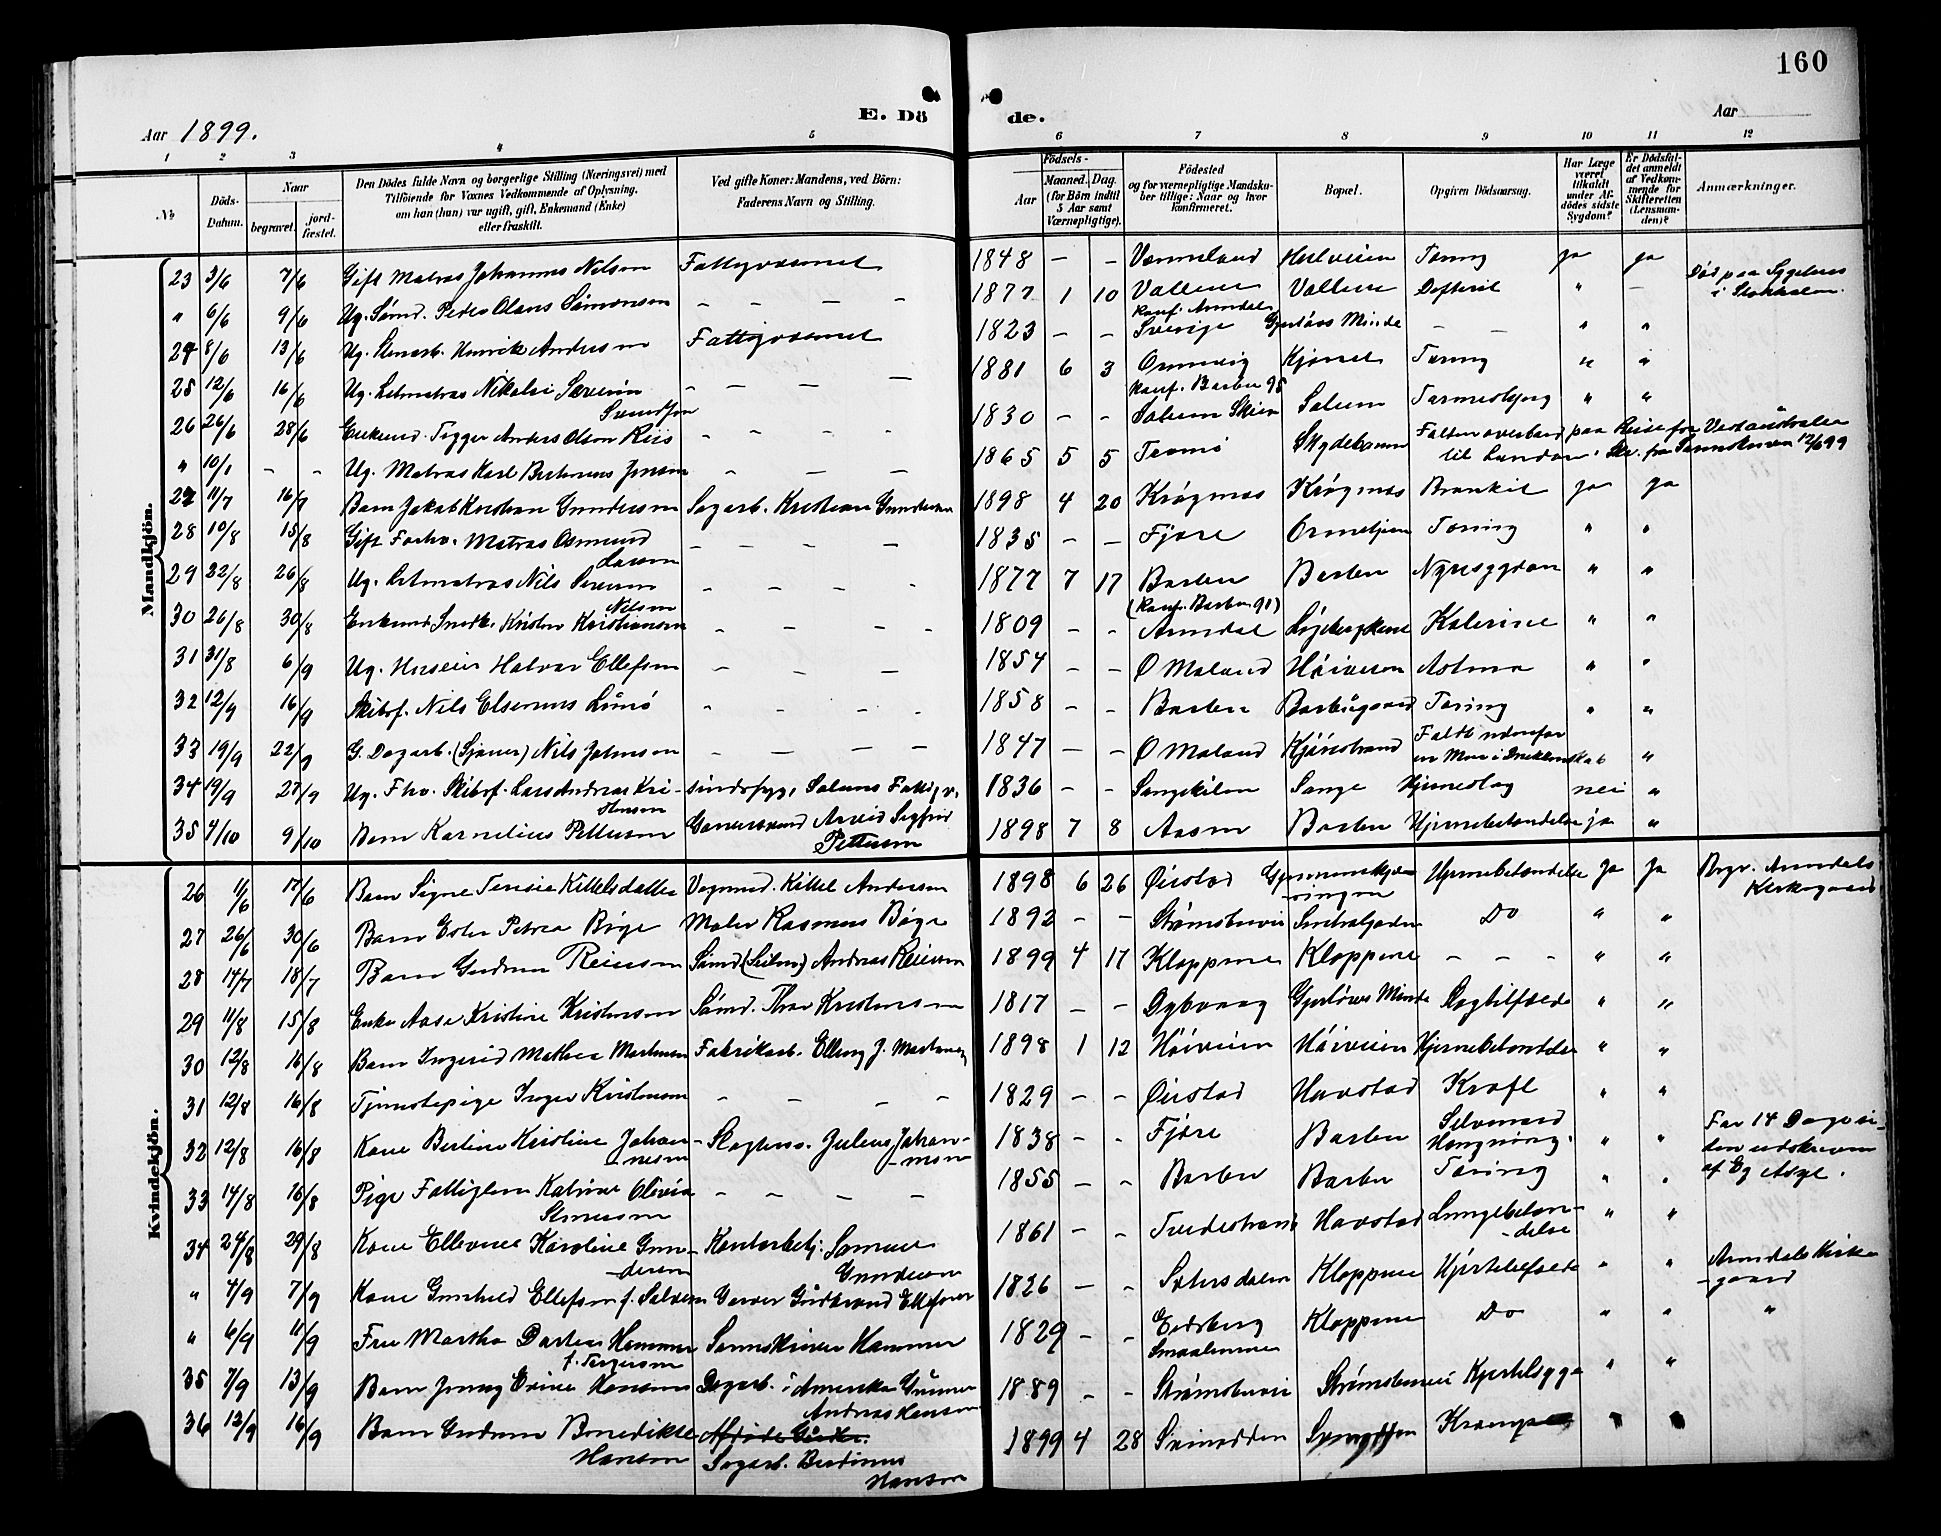 160
Aar 1899.
E. Dö de.
Aar
1 2 3 4 5 6 7 8 9 10 11 12
№
Döds-Datum.
Naar begravet. jord-fæstet.
Den Dödes fulde Navn og borgerlige Stilling (Næringsvei) med Tilföiende for Voxnes Vedkommende af Oplysning, om han (hun) var ugift, gift, Enkemand (Enke) eller fraskilt.
Ved gifte Koner: Mandens, ved Börn: Faderens Navn og Stilling.
Födsels- Aar Maaned. Dag. (for Börn indtil 5 Aar samt Værnepligtige).
Födested og for værnepligtige Mandskaber tillige: Naar og hvor konfirmeret.
Bopæl.
Opgiven Dödsaarsag.
Har Læge været tilkaldt under Afdödes sidste Sygdom?
Er Dödsfaldet anmeldt af Vedkommende for Skifteretten (Lensmanden)?
Anmærkninger.
Mandkjön.
23 3/6 7/6 Gift Matros Johannes Nilsen Fattigvæsenet 1848 — — Vermland Hulveien Tæring ja ja
" 6/6 9/6 Ug. Sömd. Peder Olaus Simonsen — — — — 1877 1 10 Vallene Konf. Arendal Vallene Difterit " — Död paa Sygehus i Stokholm.
24 8/6 13/6 Ug. Stenarb. Henrik Andersen Fattigvæsenet 1823 — — Sverige Gjerlöws Minde — — " "
25 12/6 16/6 Ug. Letmatros Nikolai Severin Svendsen — — — — 1881 6 3 Konf. Barbu 95 Tæring " "
26 26/6 28/6 Enkemd. Tigger Anders Olsen Riis — — — — 1830 — — Salum " "
" 10/1 — — Ug. Matros Karl — — — 1865 5 5 Tromö Falden overbord paa Reise fra Vestaustralien til London. Skr. fra 12/6 99
27 11/7 16/7 Barn Jakob Kristian Gundersen Sagarb. Kristian Gundersen 1898 4 20 Krögenes Krögenes Bronkit ja ja
28 10/8 15/8 Gift Forhv. Matros Osmund Larsen — — — — 1835 — — Fjære Tæring " "
29 22/8 26/8 Ug. Letmatros Nils Severin Nilsen — — — — 1877 7 17 Barbu (Konf. Barbu 91) Barbu Nyresygdom " "
30 26/8 30/8 Enkemd Snedk. Kristen Kristiansen — — — — 1809 — — Arendal " "
31 31/8 6/9 Ug. Halvor Ellefsen — — — 1854 — — Ö Moland Höiveien Astma " "
32 12/9 16/9 Skibsf. Nils Elserius Lunö — — — — 1858 — — Barbu Barbugaard Tæring " "
33 19/9 22/9 G. Dagarb. (Sjouer) Nils Johnsen — — — — 1847 — — Ö Moland Faldt udenfor en Mur i Drukkenskab "
34 19/9 27/9 Ug. Fhv. Skibsf. Lars Andreas Kristensen sindssyg, Salums Fattigv. 1836 — — Songekilen Songe Hjerneslag nei "
35 4/10 9/10 Barn Kornelius Pettersen Arvid Sigfrid Pettersen 1898 7 8 Barbu Hjernebetændelse ja "
Kvindekjön.
26 11/6 17/6 Barn Signe Teresie Kittelsdatter Vognmd. Kittel Andersen 1898 6 26 Öiestad Hjernebetændelse Ja Ja Begr. Arendals Kirkegaard
27 26/6 30/6 Barn Ester Petrea Böge Maler Rasmus Böge 1892 — — Strömsbuvei Do " "
28 14/7 18/7 Barn Gudrun Reiersen Sömd (Seilm.) Andreas Reiersen 1899 4 17 Kloppene Kloppene — — — " "
29 11/8 15/8 Enke Aase Kristine Kristensen Sömd. Thor Kristensen 1817 — — Dybvaag Gjerlöws Minde Slagtilfælde " "
30 12/8 16/8 Barn Ingerid Mathea Mortensen Fabrikarb. Elling J. Mortensen 1898 1 12 Höiveien Höiveien Hjernebetændelse " "
31 12/8 16/8 Tjenestepige Inger Kristensen — — — — 1829 — — Öiestad Havstad Kræft " "
32 12/8 16/8 Kone Bertine Kristine Johannesen Slagterm. Julius Johannesen 1838 — — Fjære Barbu Selvmord Hængning. " " For 14 Dage siden udskreven af Eg Asyl.
33 14/8 16/8 Pige Fattiglem Katrine Olivia — — — — 1855 — — Barbu Barbu Tæring " "
34 24/8 29/8 Kone Ellevine Karoline Gundersen Kontorbetj. Gundersen 1861 — — Tvedestrand Havstad Lungebetændelse " "
" 4/9 7/9 Kone Gunhild Ellefsen f. Salvesen Garver Gudbrand Ellefsen 1826 — — Sætersdalen Kloppene Hjertelidelse " " Arendals Kirkegaard
" 6/9 11/9 Fru Martha Dorthea Hammer f. Torgersen Sorenskriver Hammer 1829 — — Eidsberg Smaalenene Kloppene Do " " "
35 7/9 13/9 Barn Jenny Hansen Dagarb. i Amerika Gunner Andreas Hansen 1889 — — Strömsbuvei Strömsbuvei Kjertelsyge " "
36 13/9 16/9 Barn Gudrun Benedikte Hansen Sagarb. Berdinus Hansen 1899 4 28 Svinodden Krampe " "